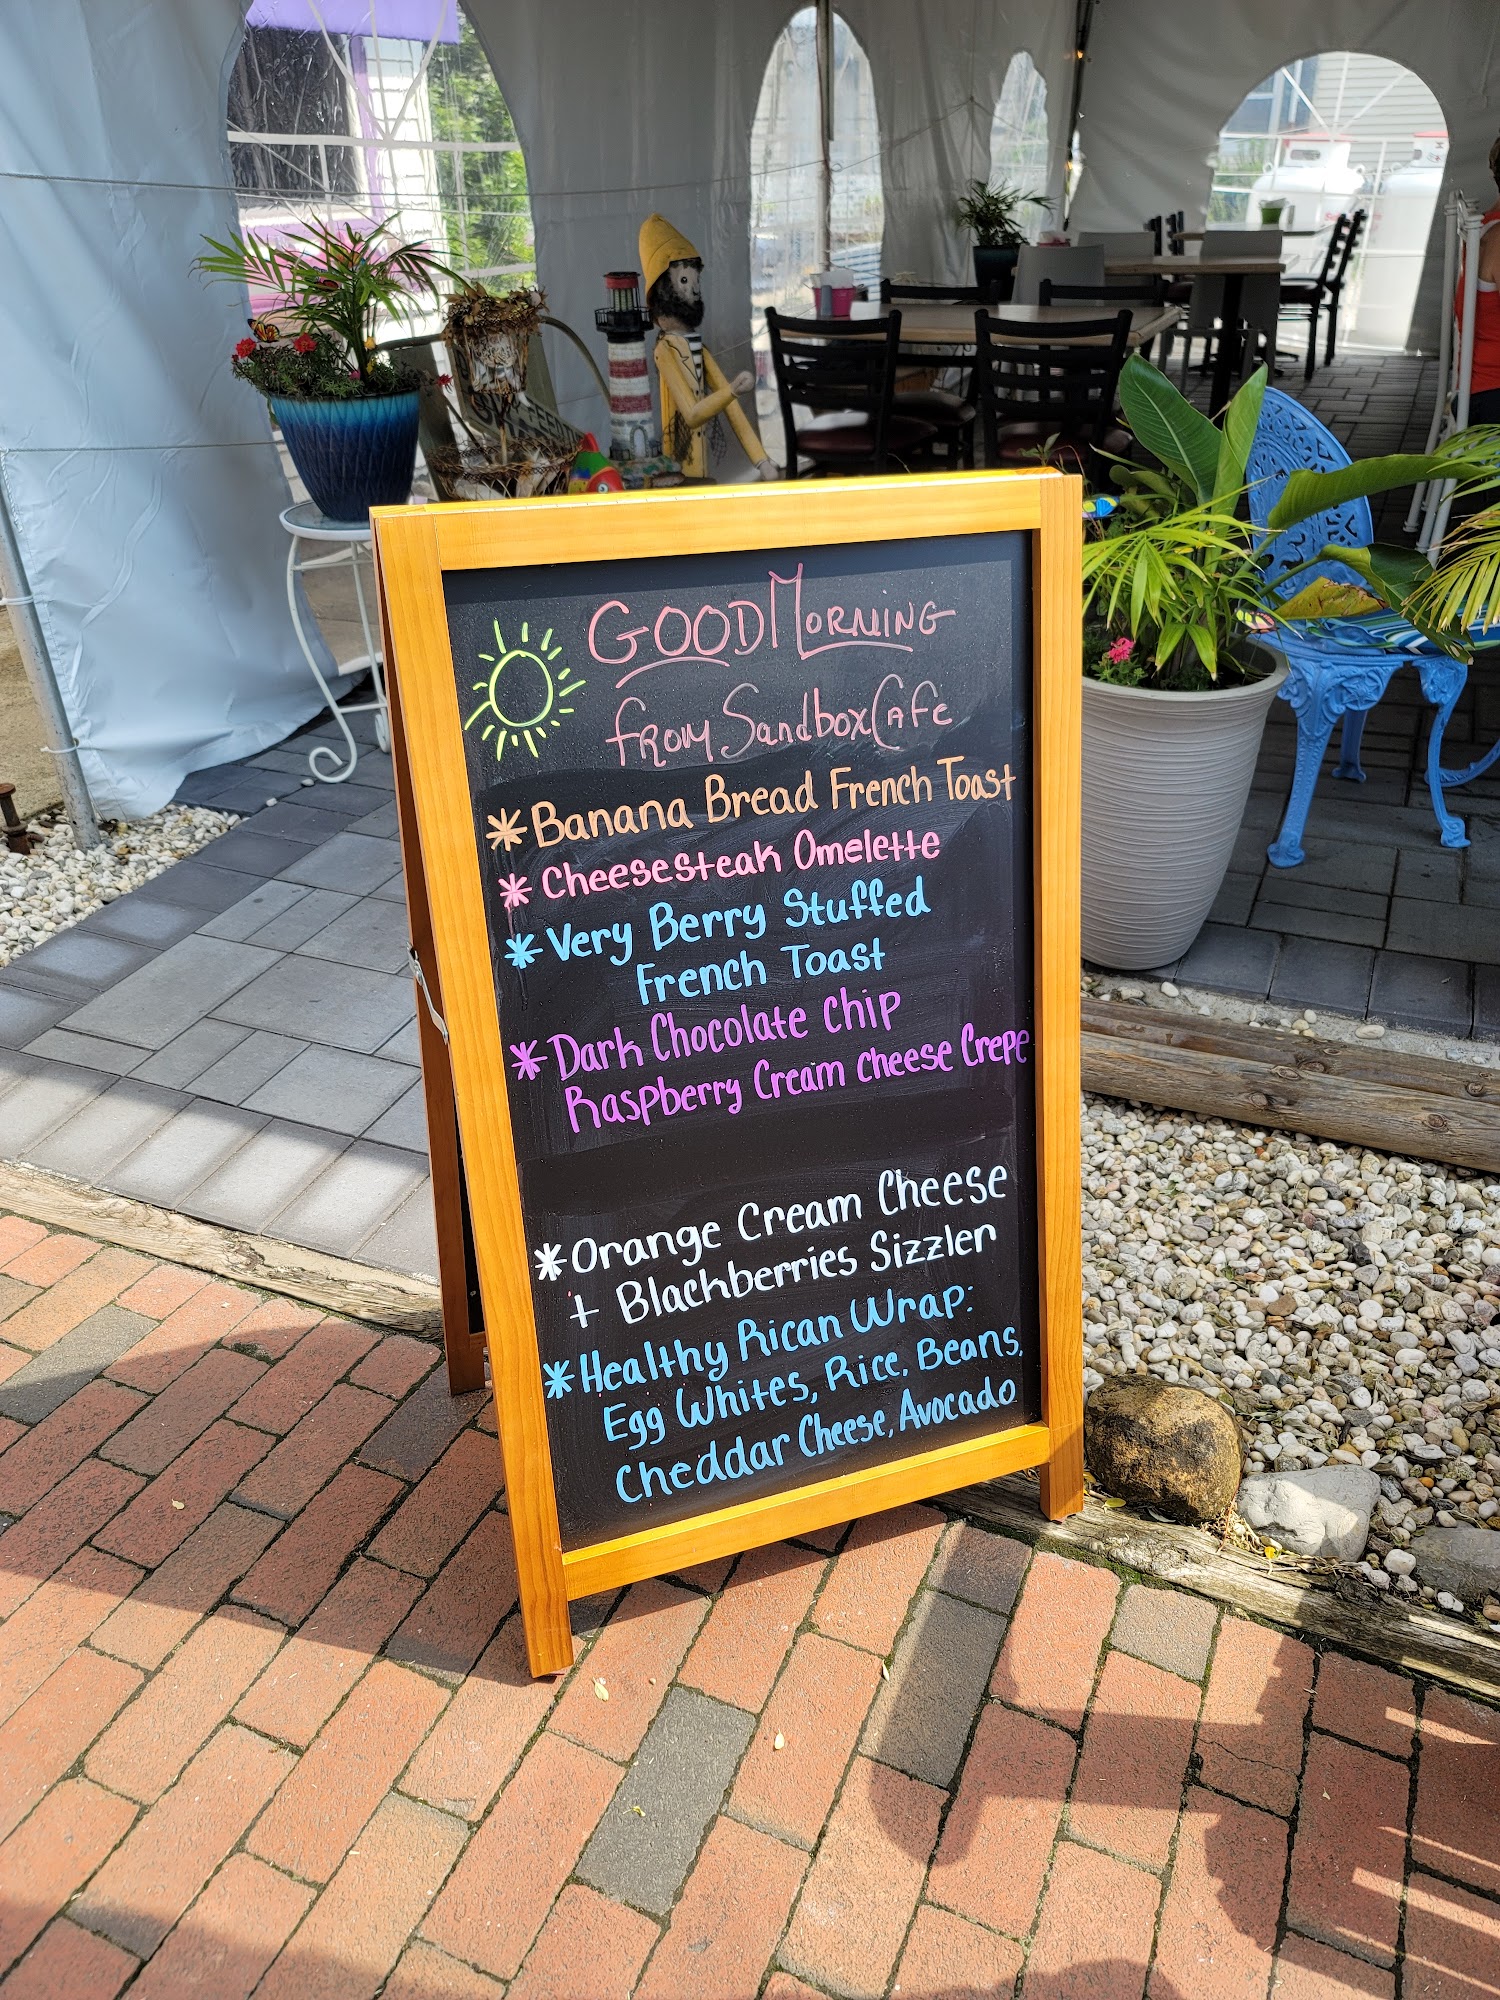 GOOD MORNING
FROM Sandbox CAFe
* Banana Bread French Toast
* Cheesesteak Omelette
* Very Berry Stuffed
French Toast
* Dark Chocolate Chip
Raspberry Cream Cheese Crepe
* Orange Cream Cheese
+ Blackberries Sizzler
* Healthy Rican Wrap:
Egg Whites, Rice, Beans,
Cheddar Cheese, Avocado